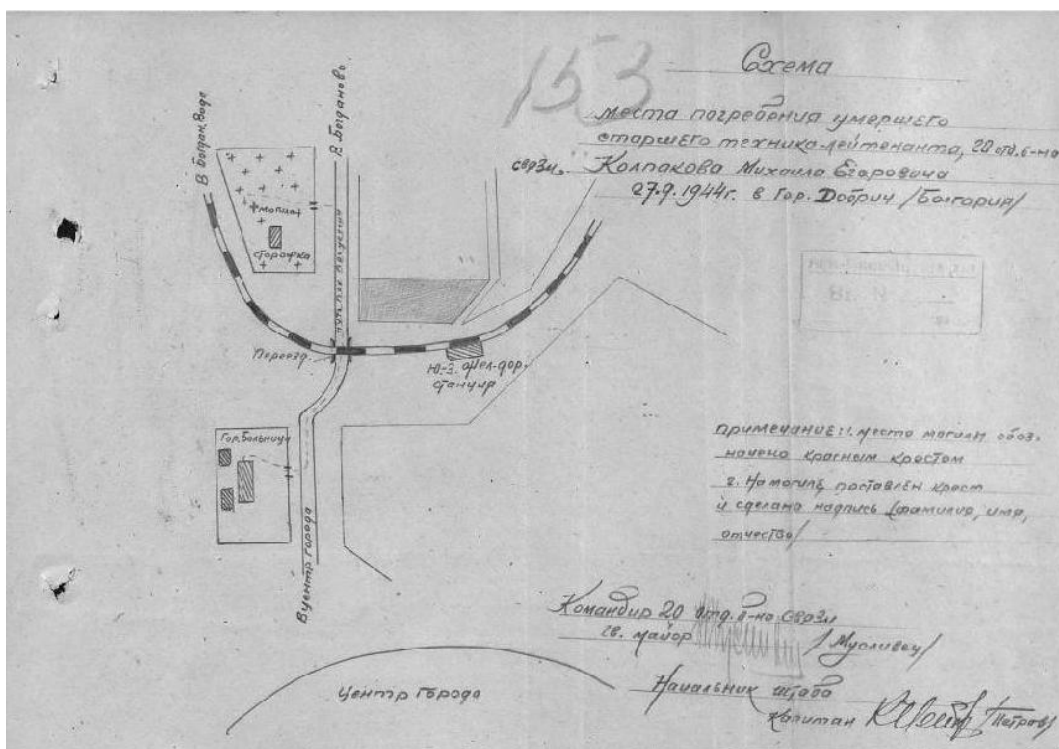 153
Схема
места погребения умершего
старшего техника-лейтенанта, 20 отд. б-на
связи, Колпакова Михаила Егоровича
27.9.1944г. в гор. Добрич /Болгария/
В Богдан.
В. Богданово.
могила
сторожка
Переезд.
Ю-З. жел-дор.
станция
Гор. Больница
В центр города
Центр города
примечание: 1. место могилы обоз-
начено красным крестом
2. На могиле поставлен крест
и сделана надпись (фамилия, имя,
отчество/
Командир 20 отд. б-на связи
гв. майор
Начальник штаба
Капитан /Петров/